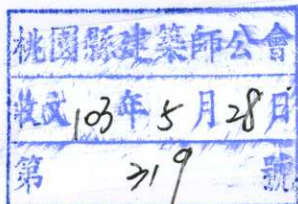 桃園縣建築師公會
收文103年5月28日
第319號